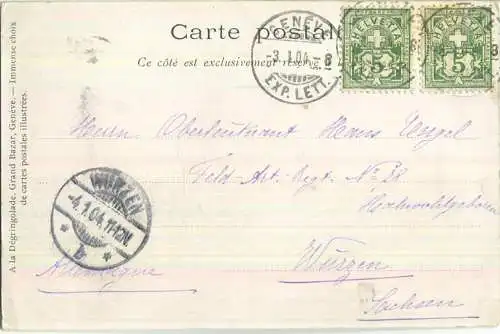 Carte postale
Ce côté est exclusivement réservé
GENÈVE
-3.I.04.-8
EXP. LETT.
HELVETIA
5
HELVETIA
5
Herrn Oberleutnant Hans
Feld-Art.-Regt. No
Hochwohlgeboren
WURZEN
-4.1.04.11-12V.
* b *
Allemagne
Wurzen
Sachsen
A la Dégringolade. Grand Bazar, Genève. — Immense choix
de cartes postales illustrées.